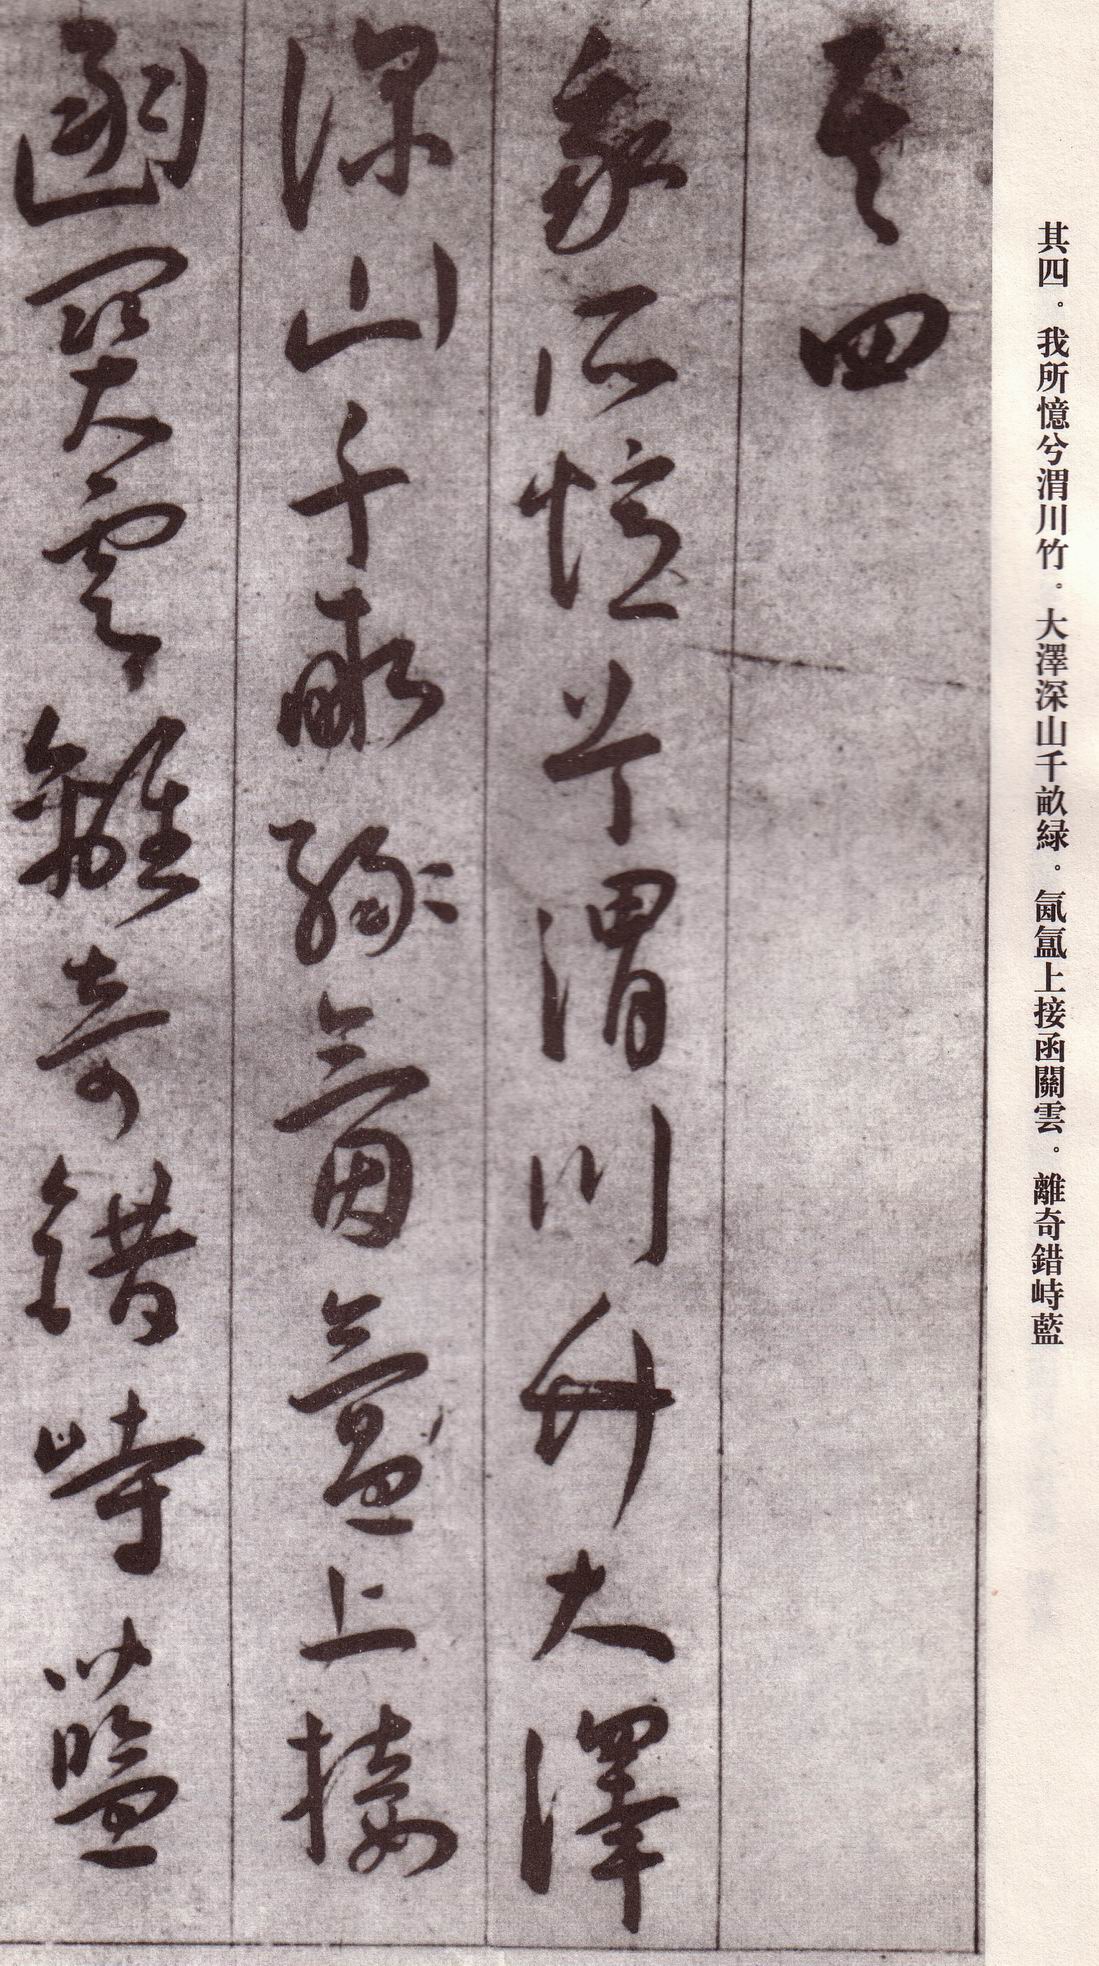 其四。我所憶兮渭川竹。大澤深山千畝緑。氤氳上接函關雲。離奇錯峙藍
其四
我所憶兮渭川竹大澤
深山千畝緑氤氳上接
函關雲離奇錯峙藍